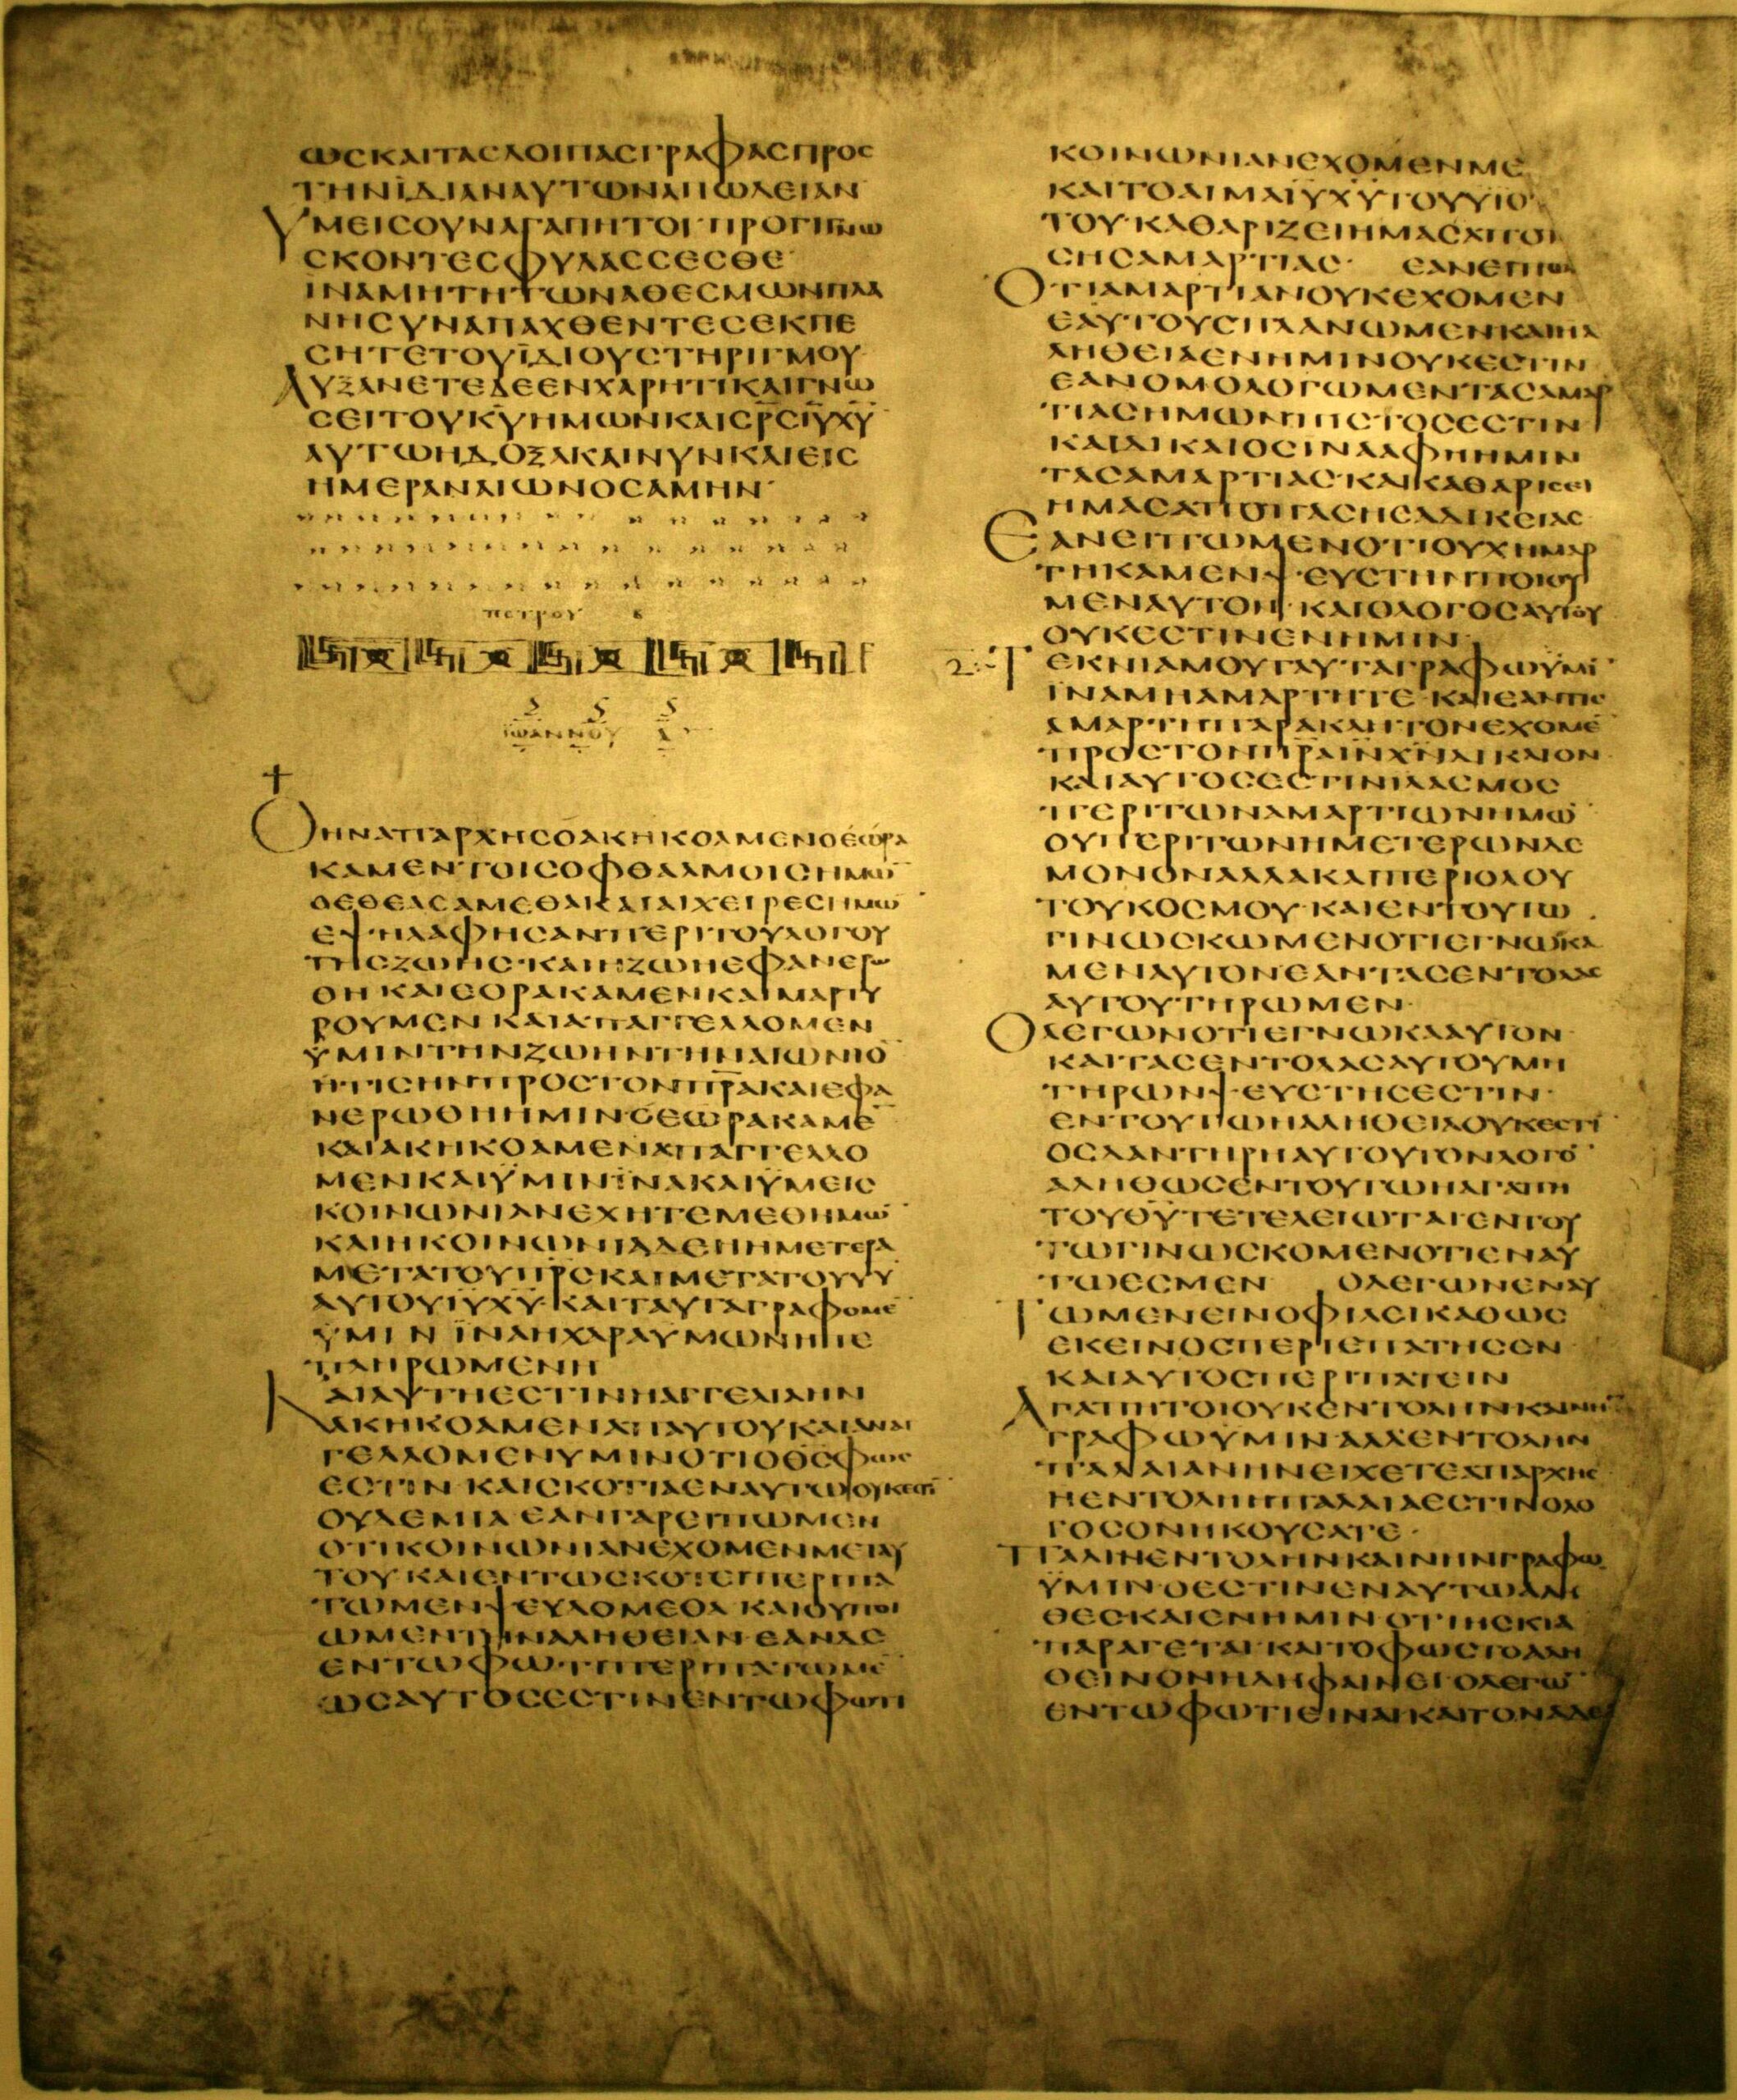 ωςκαιταςλοιπαςγραφαςπρος
τηνϊδιαναυτωναπωλειαν
υμειςουναγαπητοι·προγινω
σκοντεςφυλασσεσθε
ιναμητητωναθεσμωνπλα
νησυναπαχθεντεςεκπε
σητετουϊδιουστηριγμου
αυξανετεδεενχαρητικαιγνω
σειτουκ̅υ̅ημωνκαισ̅ρ̅σ̅ι̅υ̅χ̅υ̅
αυτωηδοξακαινυνκαιεις
ημεραναιωνοςαμην·
πετρου β
ιωαννου α
οηναπαρχηςοακηκοαμενοεωρα
καμεντοιςοφθαλμοιςημω̅
οεθεασαμεθακαιαιχειρεςημω̅
εψηλαφησανπεριτουλογου
τηςζωης·καιηζωηεφανερω
θηκαιεορακαμενκαιμαρτυ
ρουμενκαιαπαγγελλομεν
ϋμιντηνζωηντηναιωνιο̅
ητιςηνπροςτονπ̅ρ̅α̅καιεφα
νερωθηημινοεωρακαμε̅
καιακηκοαμεναπαγγελλο
μενκαιϋμινϊνακαιϋμεις
κοινωνιανεχητεμεθημω̅
καιηκοινωνιαδεηημετερα
μετατουπ̅ρ̅ς̅καιμετατουυ̅υ̅
αυτουι̅υ̅χ̅υ̅·καιταυταγραφομε̅
ϋμινϊναηχαραυμωνηπε
πληρωμενη
καιαυτηεστινηαγγελιαην
ακηκοαμεναπαυτουκαιαναγ
γελλομενυμινοτιοθ̅ς̅φως
εστινκαισκοτιαεναυτωουκεστι̅
ουδεμιαεανγαρειπωμεν
οτικοινωνιανεχομενμεταυ
τουκαιεντωσκοτειπεριπα
τωμενψευδομεθακαιουποι
ωμεντηναληθειανεανδε
εντωφωτιπεριπατωμε̅
ωςαυτοςεστινεντωφωτι
κοινωνιανεχομενμε
καιτοαιμαι̅υ̅χ̅υ̅τουυϊο
του·καθαριζειημαςαπο
σηςαμαρτιας· εανειπω
οτιαμαρτιανουκεχομεν
εαυτουςπλανωμενκαιη
αληθειαενημινουκεστιν
εανομολογωμενταςαμαρ
τιαςημωνπιστοςεστιν
καιδικαιοςιναφηημιν
ταςαμαρτιας·καικαθαρισει
ημαςαποπασηςαδικειας
εανειπωμενοτιουχημαρ
τηκαμενψευστηνποιου
μεναυτον·καιολογοςαυτου
ουκεστινενημιν
τεκνιαμουταυταγραφωυμι̅
ϊναμηαμαρτητε·καιεαντις
αμαρτηπαρακλητονεχομε̅
προςτονπ̅ρ̅α̅ι̅ν̅χ̅ν̅δικαιον
καιαυτοςεστινιλασμος
περιτωναμαρτιωνημω̅
ουπεριτωνημετερωνδε
μονοναλλακαιπεριολου
τουκοσμου·καιεντουτω
γινωσκωμενοτιεγνωκα
μεναυτονεανταςεντολας
αυτουτηρωμεν
ολεγωνοτιεγνωκααυτον
καιταςεντολαςαυτουμη
τηρωνψευστηςεστιν·
εντουτωηαληθειαουκεστι̅
οςδαντηρηαυτουτονλογο̅
αληθωςεντουτωηαγαπη
τουθ̅υ̅τετελειωταιεντου
τωγινωσκομενοτιεναυ
τωεσμεν ολεγωνεναυ
τωμενεινοφιλεικαθως
εκεινοςπεριεπατησεν
καιαυτοςπεριπατειν
αγαπητοιουκεντοληνκαινην
γραφωυμιναλλεντολην
παλαιανηνειχετεαπαρχης
ηεντοληηπαλαιαεστινολο
γοςονηκουσατε·
παλινεντοληνκαινηνγραφω
ϋμινοεστινεναυτωαλη
θεςκαιενημινοτιησκια
παραγεται·καιτοφωςτοαλη
θεινονηδηφαινειολεγω̅
εντωφωτιειναικαιτοναδελ